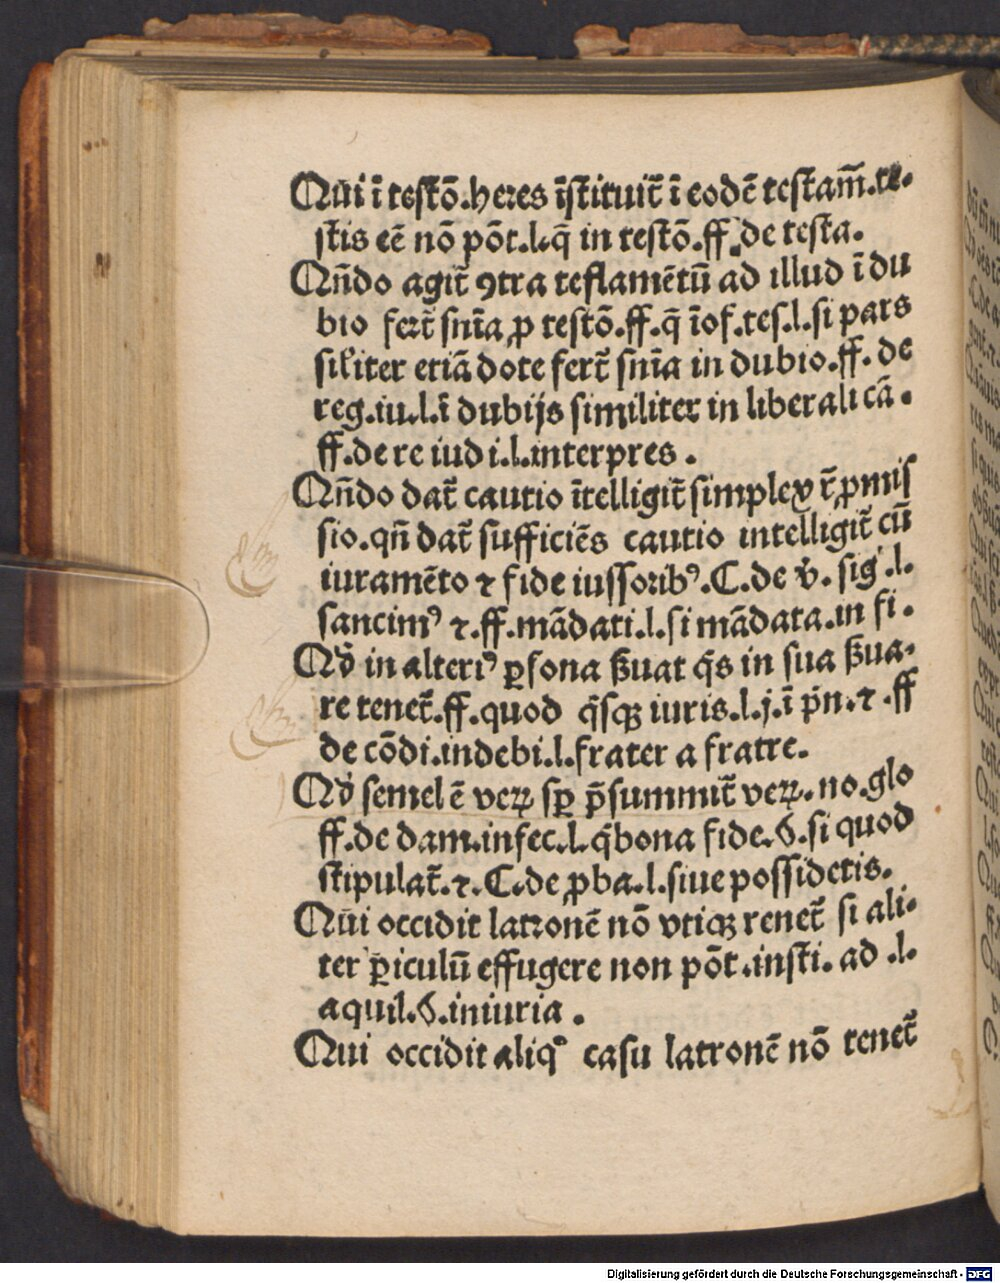 Qui ī testō.heres īstituit̄ ī eodē testam̄.te-
stis eē nō pōt.l.q̄ in testō.ff.de testa.
Qn̄do agit̄ ꝯtra testamētū ad illud ī du
bio fert̄ sn̄ia ꝓ testō.ff.q̄ īof.tes.l.si pars
siłiter etiā dote fert̄ sn̄ia in dubio.ff.de
reg.iu.l.ī dubijs similiter in liberali cā.
ff.de re iud i.l.interpres.
Qn̄do dat̄ cautio ītelligit̄ simplex r̄ ꝓmis
sio.qn̄ dat̄ sufficiēs cautio intelligit̄ cū
iuramēto ⁊ fide iussoribꝰ.C.de v̄.sig.l.
sancimꝰ ⁊.ff.mādati.l.si mādata.in fi.
Qd̓ in alteriꝰ ꝑsona ẞuat q̄s in sua ẞua-
re tenet̄.ff.quod q̄sqꝫ iuris.l.j.ī pn̄.⁊.ff
de cōdi.indebi.l.frater a fratre.
Qd̓ semel ē veꝝ sꝑ p̄summit̄ veꝝ.no.glo
ff.de dam.infec.l.q̄ bona fide.§.si quod
stipulat̄.⁊.C.de ꝓba.l.siue possidetis.
Qui occidit latronē nō vtiqꝫ tenet̄ si ali-
ter ꝑiculū effugere non pōt.insti.ad .l.
aquil.§.iniuria.
Qui occidit aliqͦ casu latronē nō tenet̄
Digitalisierung gefördert durch die Deutsche Forschungsgemeinschaft - DFG